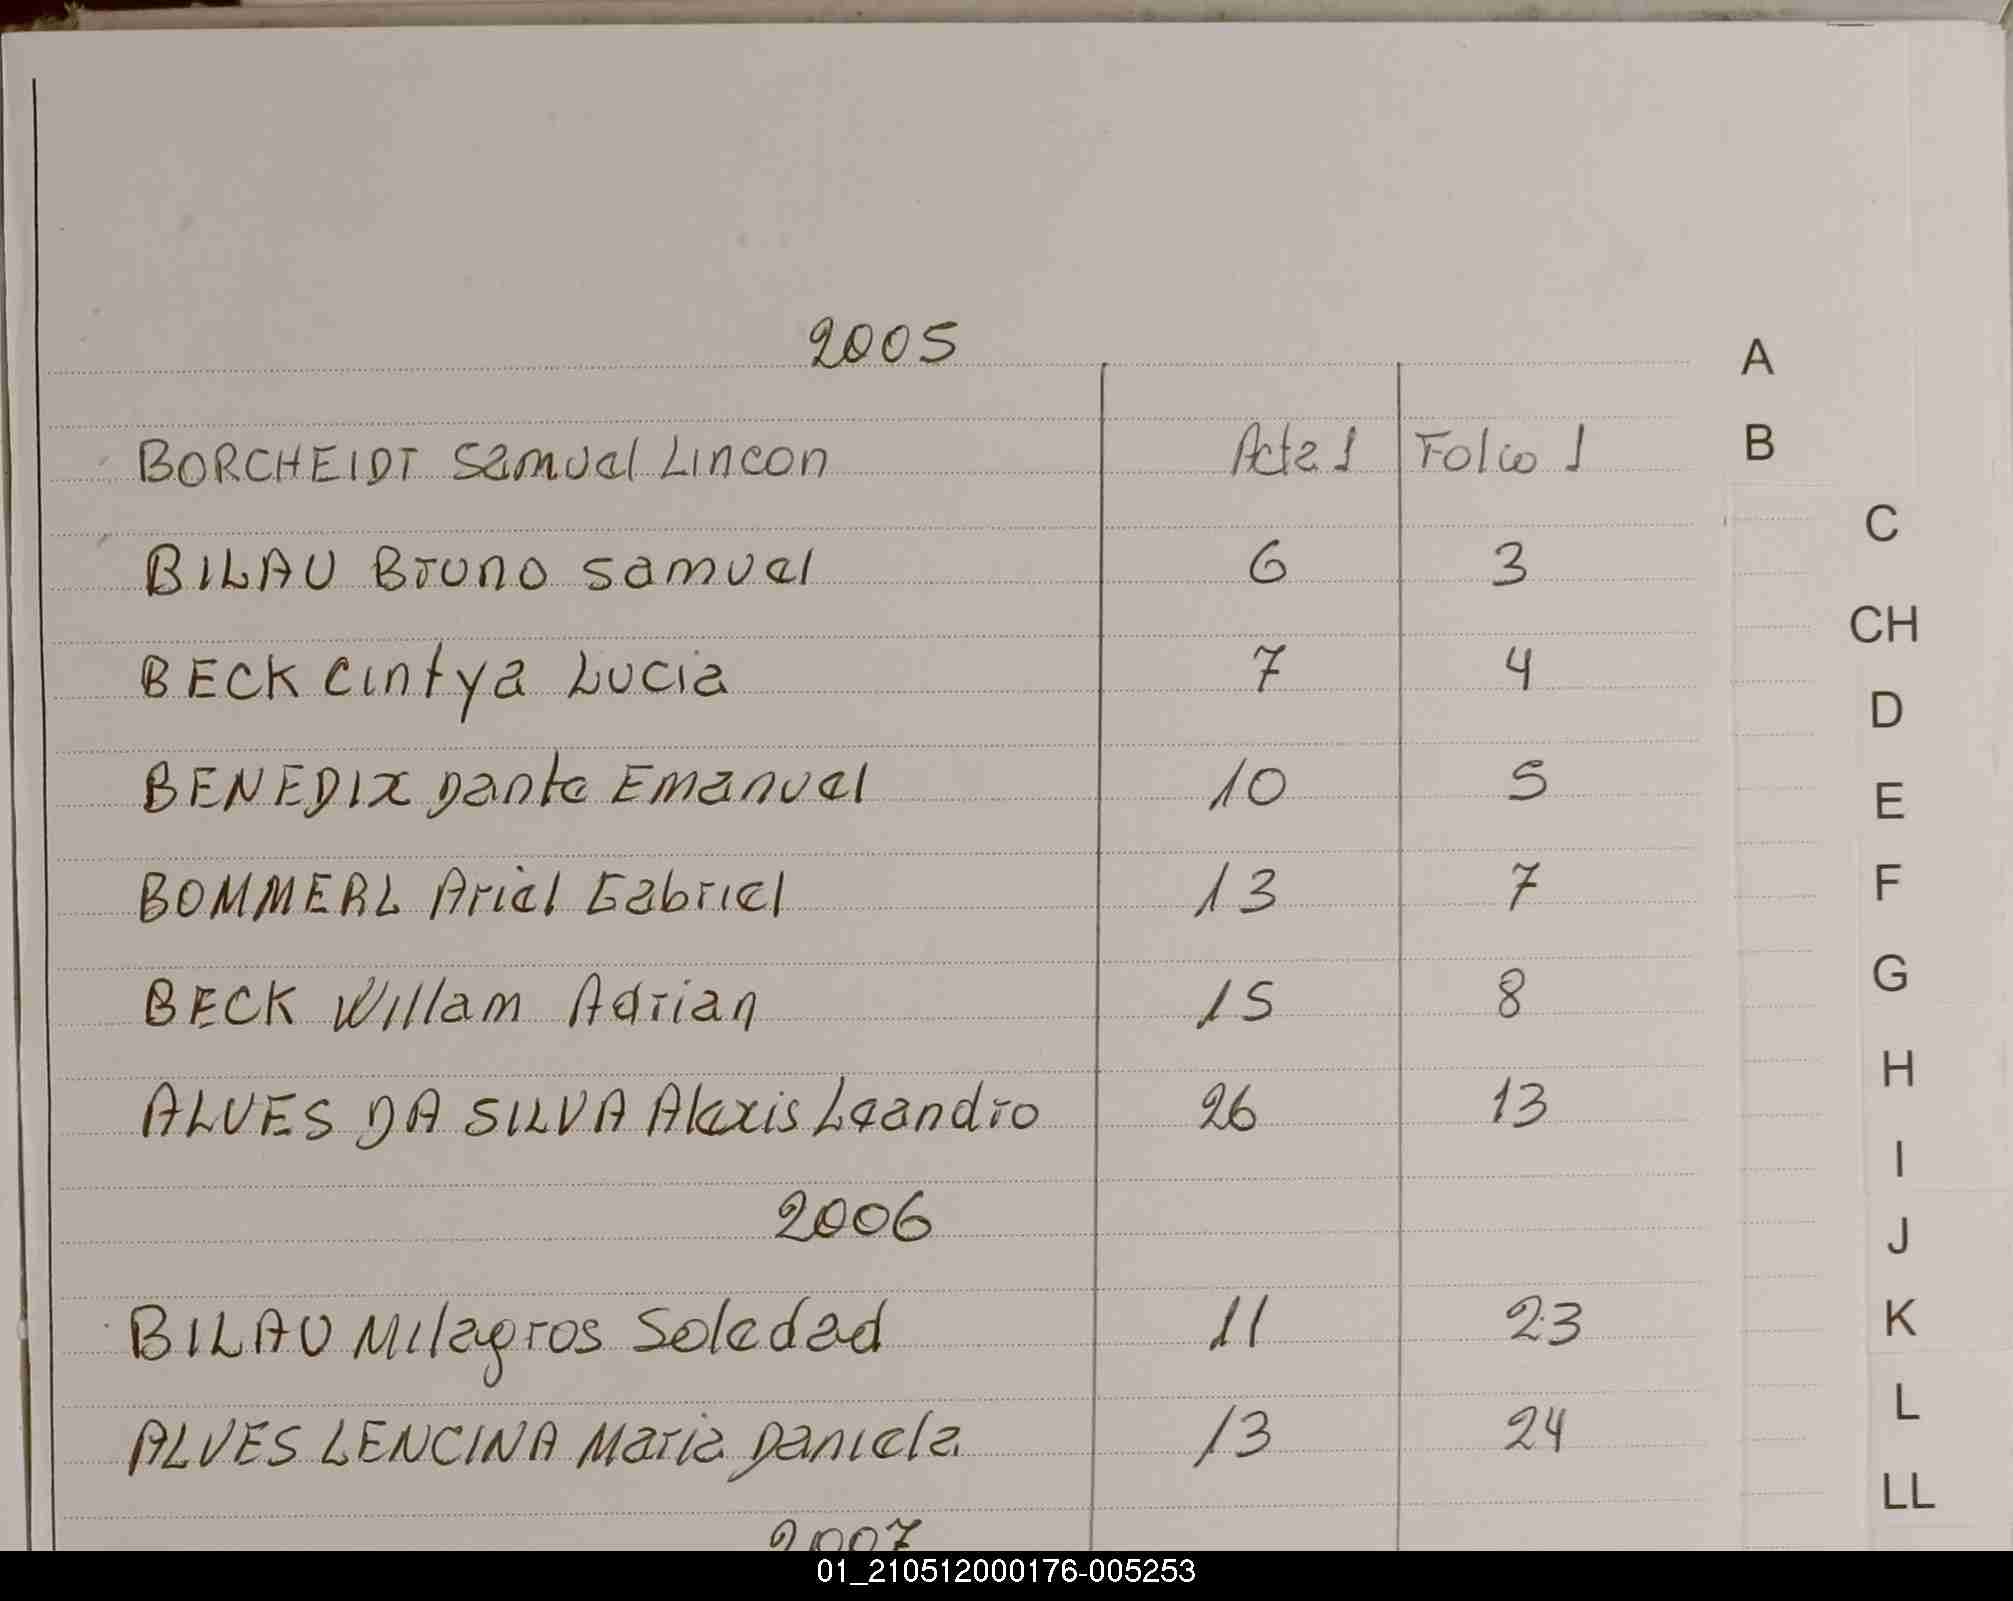 2005
A
BORCHEIDT Samuel Lincon Acta 1 Folio 1
B
C
BILAU Bruno Samuel 6 3
CH
BECK Cintya Lucia 7 4
D
BENEDIX Dante Emanuel 10 5
E
BOMMERL Ariel Gabriel 13 7
F
G
BECK Willam Adrian 15 8
H
ALVES DA SILVA Alexis Leandro 26 13
I
2006
J
BILAU Milagros Soledad 11 23
K
L
ALVES LENCINA Maria Daniela 13 24
LL
2007
01_210512000176-005253